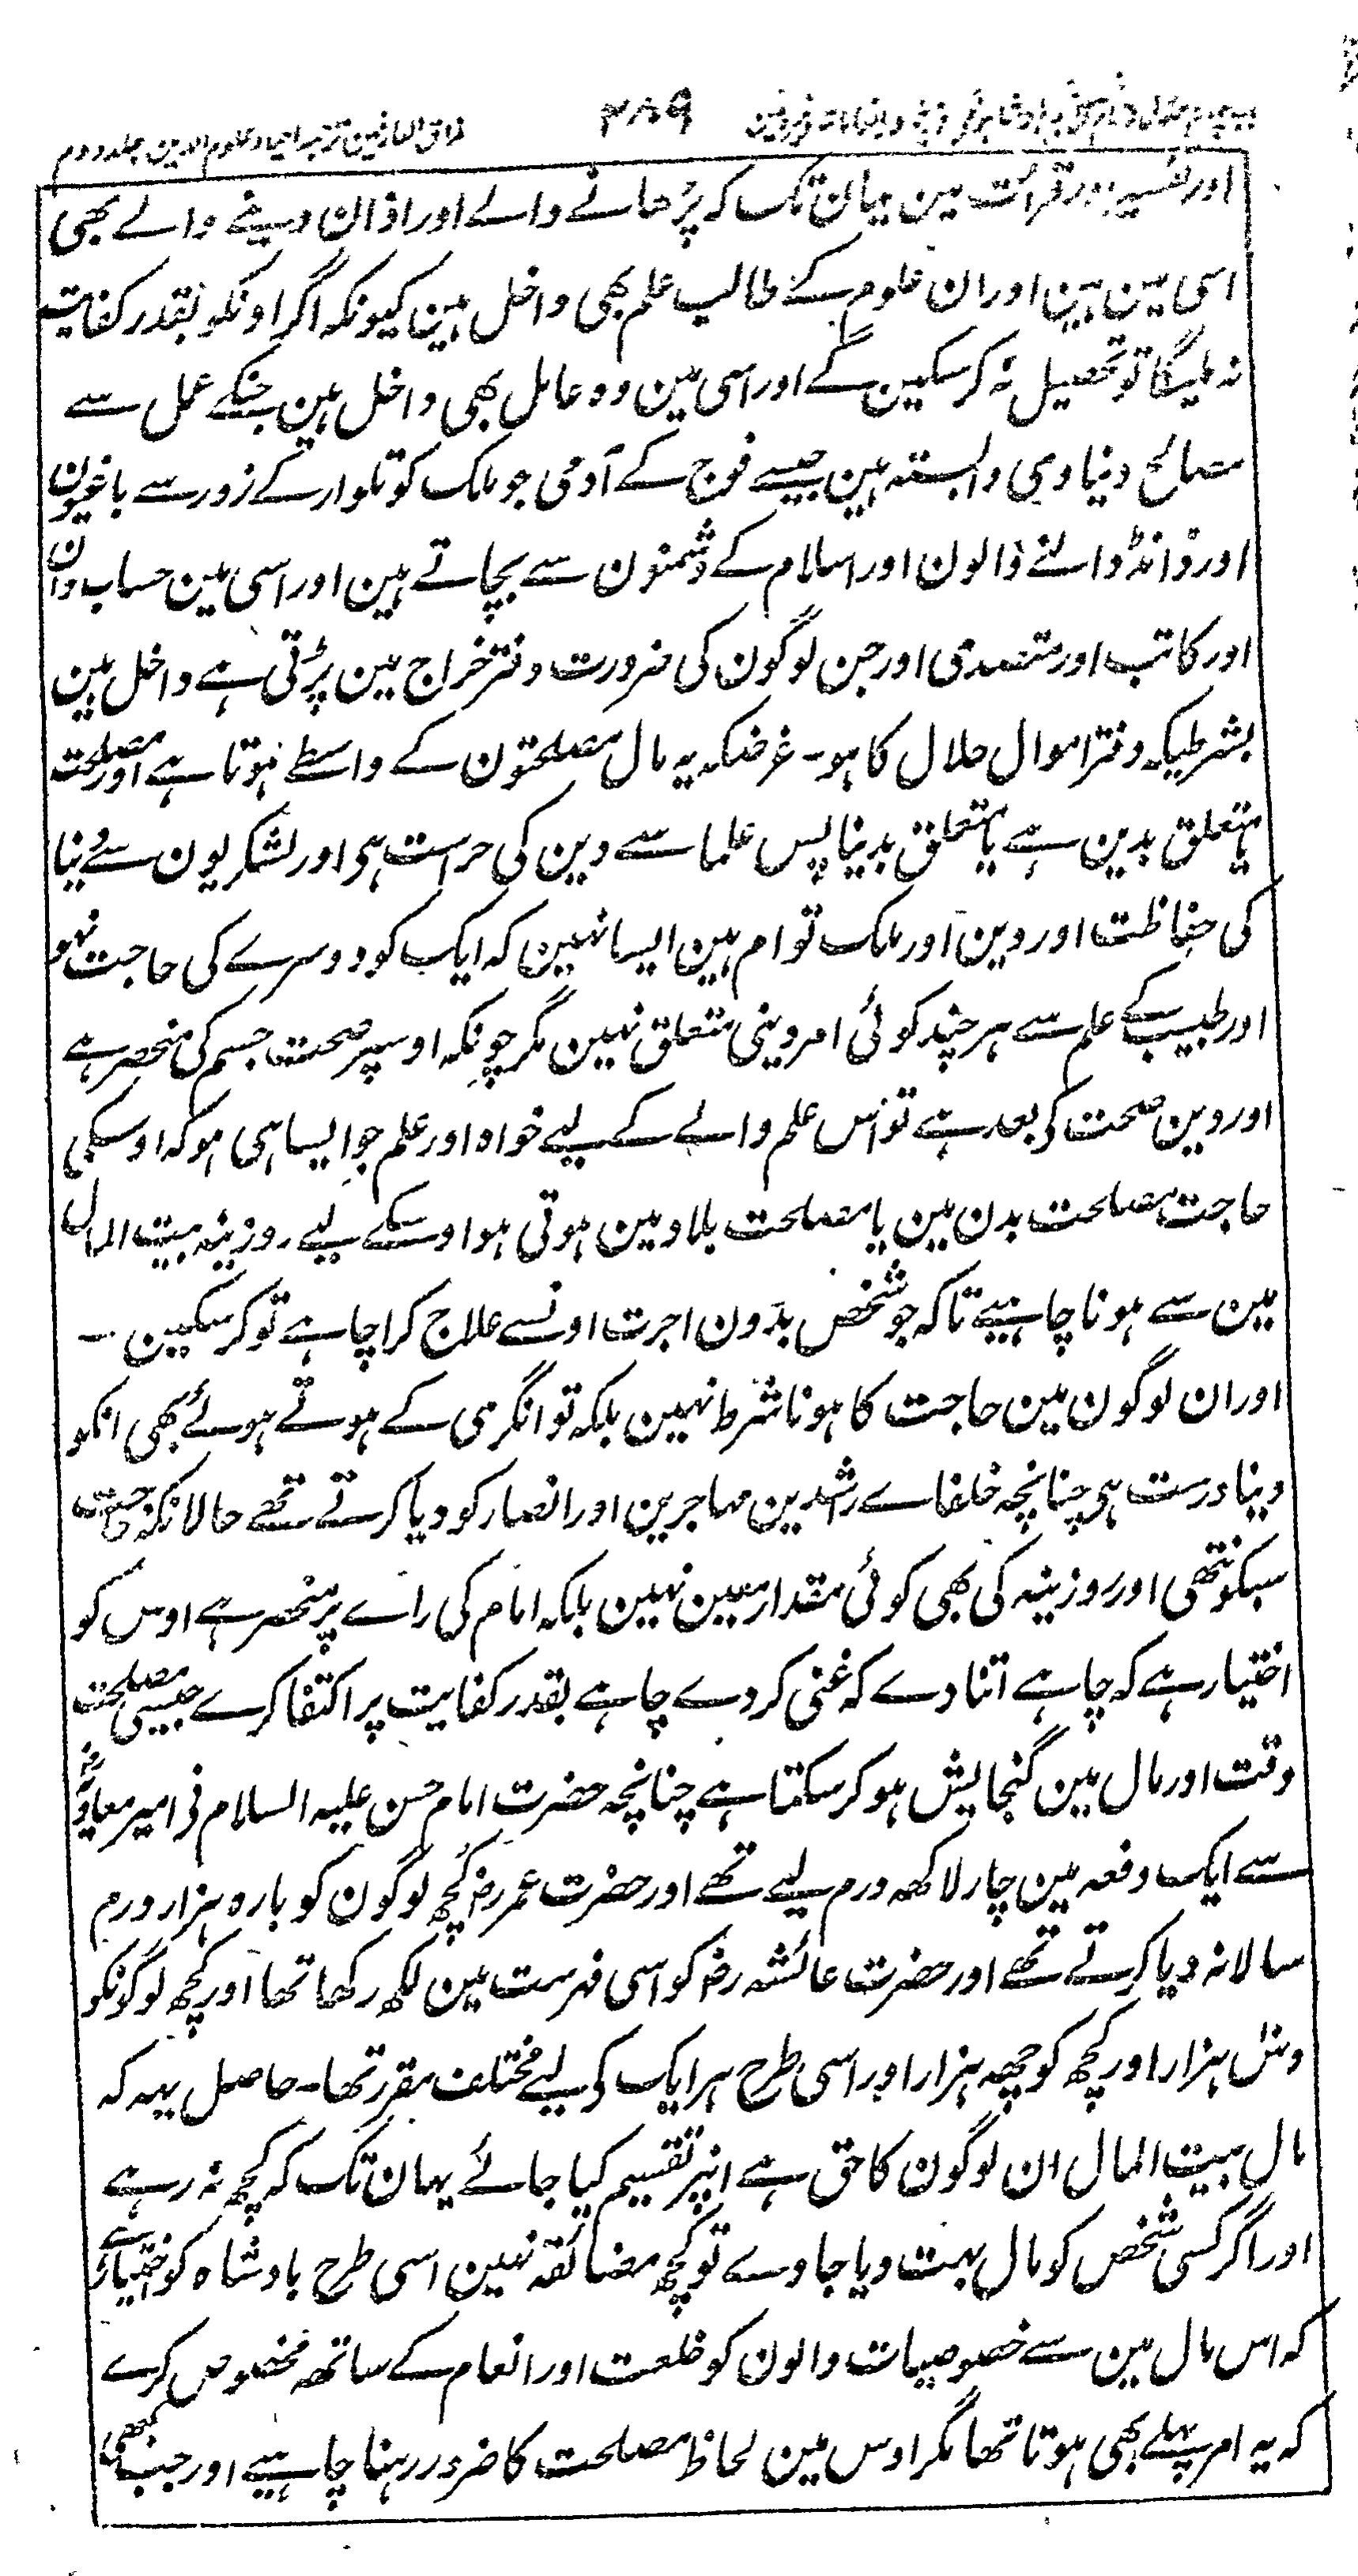 مذاق العارفین ترجمہ احیاء علوم الدین جلد دوم
۲۸۹
اور تفسیر اور قرأت مین یہان تک کہ پڑھانے والے اور اذان دینے والے بھی
اسی مین ہین اور ان علوم کے طالب علم بھی داخل ہین کیونکہ اگر اونکو بقدر کفایت
نہ ملیگا تو تحصیل نہ کر سکین گے اور اسی مین وہ عامل بھی داخل ہین جنکے عمل سے
مصالح دنیاوی وابستہ ہین جیسے فوج کے آدمی جو ملک کو تلوار کے زور سے باغیون
اور ڈانڈ والنے والون اور اسلام کے دشمنون سے بچاتے ہین اور اسی مین حساب دان
اور کاتب اور متصدی اور جن لوگون کی ضرورت دفتر خراج مین پڑتی ہے داخل ہین
بشرطیکہ دفتر اموال حلال کا ہو۔ غرضکہ یہ مال مصلحتون کے واسطے ہوتا ہے اور مصلحت
یا متعلق بدین ہے یا متعلق بدنیا پس علما سے دین کی حراست ہی اور لشکریون سے دنیا
کی حفاظت اور دین اور ملک توام ہین ایسا نہین کہ ایک کو دوسرے کی حاجت نہو
اور طبیب کے علم سے ہر چند کوئی امر دینی متعلق نہین مگر چونکہ اوسپر صحت جسم کی منحصر ہے
اور دین صحت کی بعد ہے تو اس علم والے کے لیے خواہ اور علم جو ایسا ہی ہو کہ اوسکی
حاجت مصلحت بدن مین یا مصلحت بلاد مین ہوتی ہو اوسکے لیے روزینہ بیت المال
مین سے ہونا چاہیے تاکہ جو شخص بدون اجرت اونسے علاج کرا چاہے تو کر سکین –
اور ان لوگون مین حاجت کا ہونا شرط نہین بلکہ توانگری کے ہوتے ہوئے بھی انکو
دینا درست ہی چنانچہ خلفاے راشدین مہاجرین اور انصار کو دیا کرتے تھے حالانکہ حاجت
سبکو نتھی اور روزینہ کی بھی کوئی مقدار معین نہین بلکہ امام کی راے پر منحصر ہے اوس کو
اختیار ہے کہ چاہے اتنا دے کہ غنی کر دے چاہے بقدر کفایت پر اکتفا کرے جیسی مصلحت
وقت اور مال مین گنجایش ہو کر سکتا ہے چنانچہ حضرت امام حسن علیہ السلام نی امیر معاویہؓ
سے ایک دفعہ مین چار لاکھ درم لیے تھے اور حضرت عمر رضؓ کچھ لوگون کو بارہ ہزار درم
سالانہ دیا کرتے تھے اور حضرت عائشہ رضؓ کو اسی فہرست مین لکھ رکھا تھا اور کچھ لوگونکو
دس ہزار اور کچھ کو چھہ ہزار اور اسی طرح ہر ایک کی لیے مختلف مقرر تھا۔ حاصل یہہ کہ
مال بیت المال ان لوگون کا حق ہے انپر تقسیم کیا جائے یہان تک کہ کچھ نہ رہے
اور اگر کسی شخص کو مال بہت دیا جاوے تو کچھ مضائقہ نہین اسی طرح بادشاہ کو اختیار ہے
کہ اس مال مین سے خصوصیات والون کو خلعت اور انعام کے ساتھ مخصوص کرے
کہ یہ امر پہلے بھی ہوتا تھا مگر اوس مین لحاظ مصلحت کا ضرور رہنا چاہیے اور جب